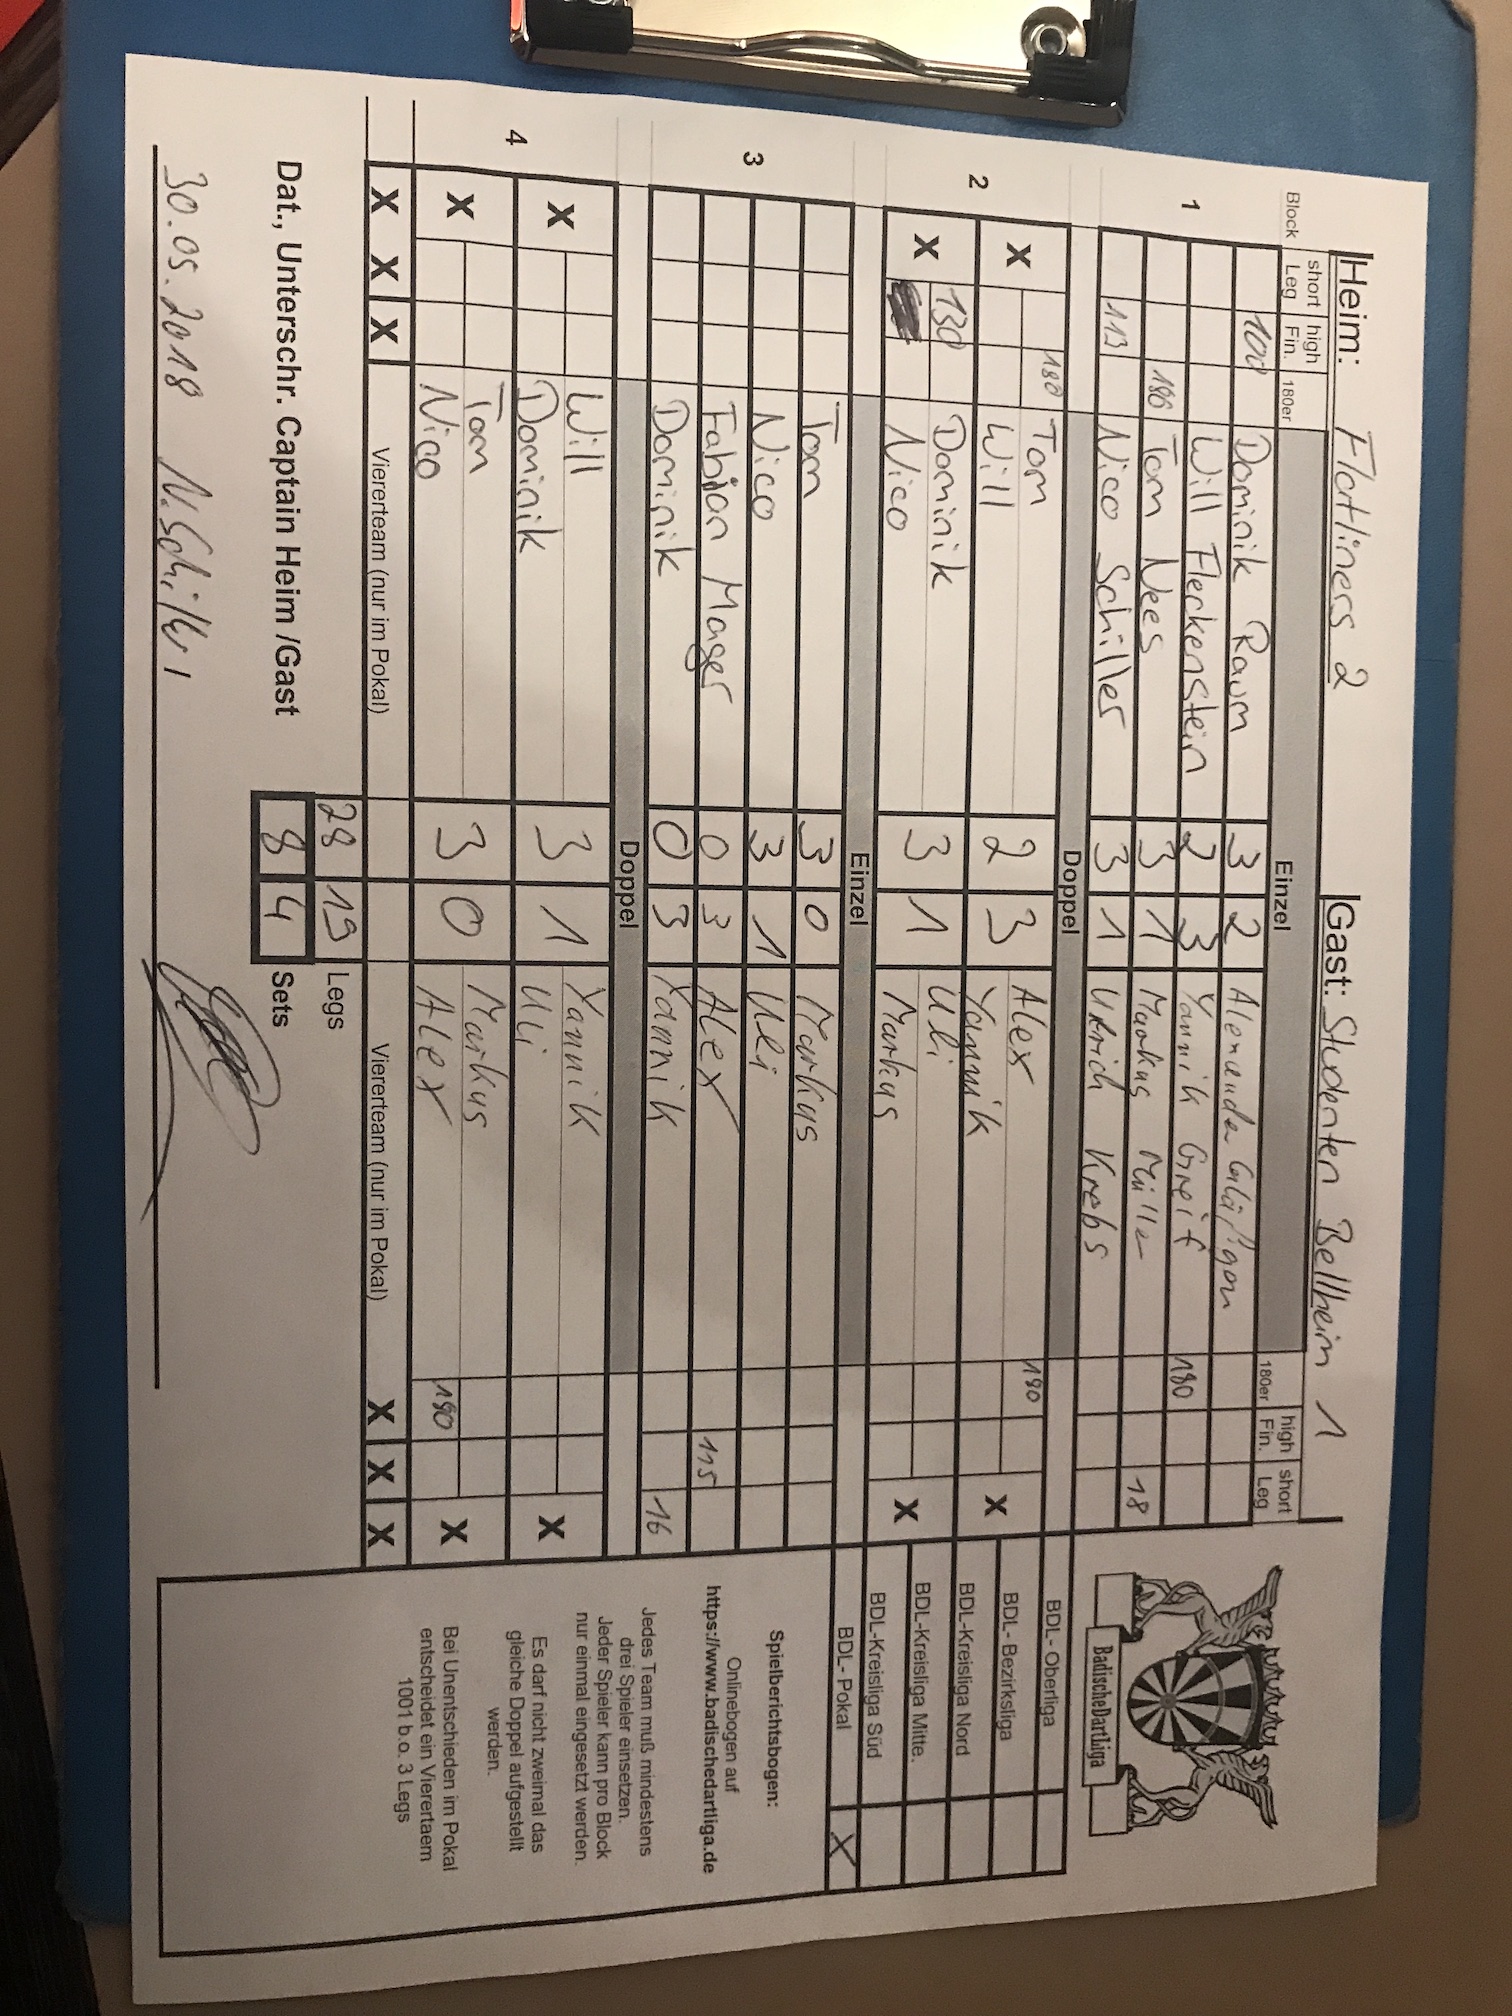 Heim: Flatliners 2 Gast: Studenten Bellheim 1
Block short Leg high Fin. 180er Einzel 180er high Fin. short Leg
1
100 Dominik Raum 3 2
Will Fleckenstein 2 3 Yannik Greif 180
180 Tom Nees 3 1 Markus Müller 18
113 Nico Schiller 3 1 Ulrich Krebs
Doppel
2
X 180 Tom 2 3 Alex 180 X
Will Yannik
X 130 Dominik 3 1 Uli X
Nico Markus
Einzel
3
Tom 3 0 Markus
Nico 3 1 Uli
Fabian Mager 0 3 Alex 115
Dominik 0 3 Yannik 16
Doppel
4
X Will 3 1 Yannik X
Dominik Uli
X Tom 3 0 Markus X
Nico Alex 180
X X X Viererteam (nur im Pokal) Viererteam (nur im Pokal) X X X
28 19 Legs
Dat., Unterschr. Captain Heim /Gast 8 4 Sets
30.05.2018 N. Schiller
BadischeDartLiga
BDL- Oberliga
BDL- Bezirksliga
BDL-Kreisliga Nord
BDL-Kreisliga Mitte.
BDL-Kreisliga Süd
BDL- Pokal X
Spielberichtsbogen:
Onlinebogen auf
https://www.badischedartliga.de
Jedes Team muß mindestens
drei Spieler einsetzen.
Jeder Spieler kann pro Block
nur einmal eingesetzt werden.
Es darf nicht zweimal das
gleiche Doppel aufgestellt
werden.
Bei Unentschieden im Pokal
entscheidet ein Vierertaem
1001 b.o. 3 Legs